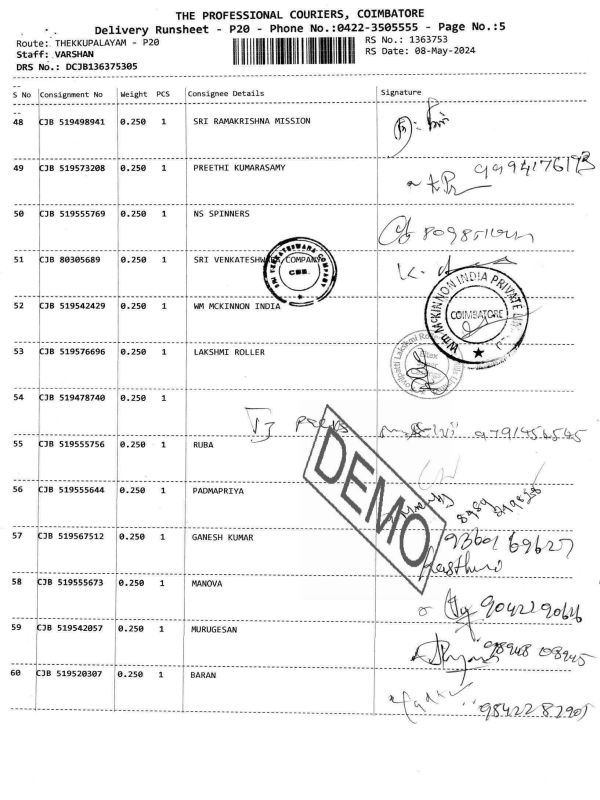 THE PROFESSIONAL COURIERS, COIMBATORE
Delivery Runsheet - P20 - Phone No.:0422-3505555 - Page No.:5
Route: THEKKUPALAYAM - P20
RS No.: 1363753
Staff: VARSHAN
RS Date: 08-May-2024
DRS No.: DCJB136375305
S No Consignment No Weight PCS Consignee Details Signature
48 CJB 519498941 0.250 1 SRI RAMAKRISHNA MISSION
49 CJB 519573208 0.250 1 PREETHI KUMARASAMY
9994176193
50 CJB 519555769 0.250 1 NS SPINNERS
51 CJB 80305689 0.250 1 SRI VENKATESHWARA COMPANY
SRI VENKATESWARA COMPANY
CBE.
52 CJB 519542429 0.250 1 WM MCKINNON INDIA
WM MCKINNON INDIA PRIVATE
COIMBATORE
53 CJB 519576696 0.250 1 LAKSHMI ROLLER
54 CJB 519478740 0.250 1
9791456545
55 CJB 519555756 0.250 1 RUBA
DEMO
56 CJB 519555644 0.250 1 PADMAPRIYA
57 CJB 519567512 0.250 1 GANESH KUMAR
9360169627
58 CJB 519555673 0.250 1 MANOVA
9042290646
59 CJB 519542057 0.250 1 MURUGESAN
98948 08945
60 CJB 519520307 0.250 1 BARAN
9842282905